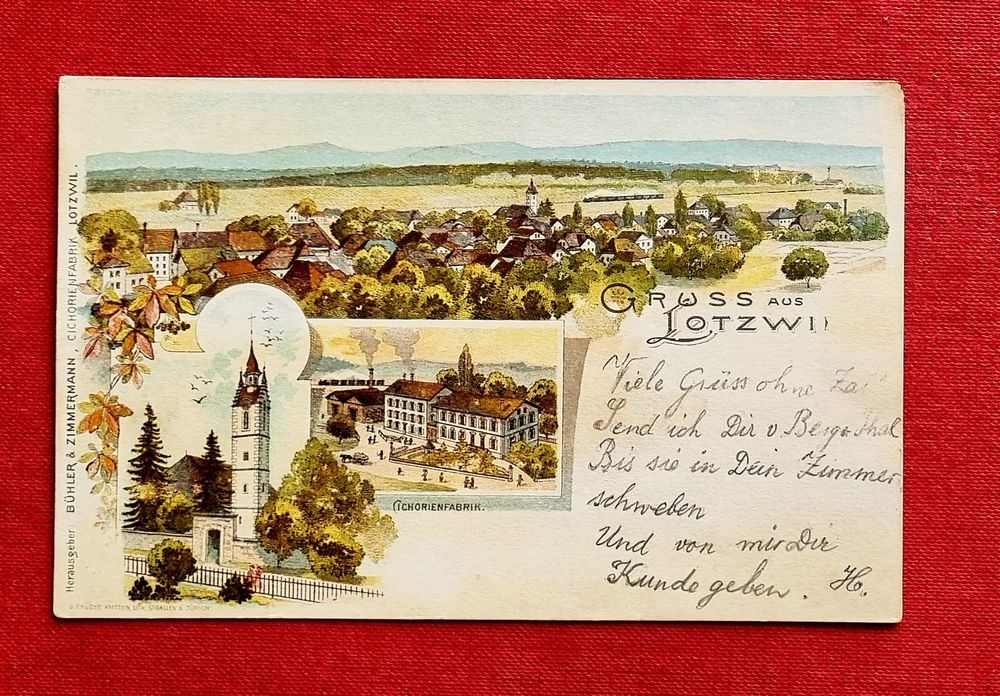 GRUSS AUS
LOTZWIL
Viele Grüss ohne Zahl
Send ich Dir v Berg & Thal
Bis sie in Dein Zimmer
schweben
Und von mir Dir
Kunde geben. H.
CICHORIENFABRIK.
Herausgeber: BÜHLER & ZIMMERMANN, CICHORIENFABRIK LOTZWIL.
GEBRÜDER AMSTEIN, LITH. ST GALLEN & ZÜRICH